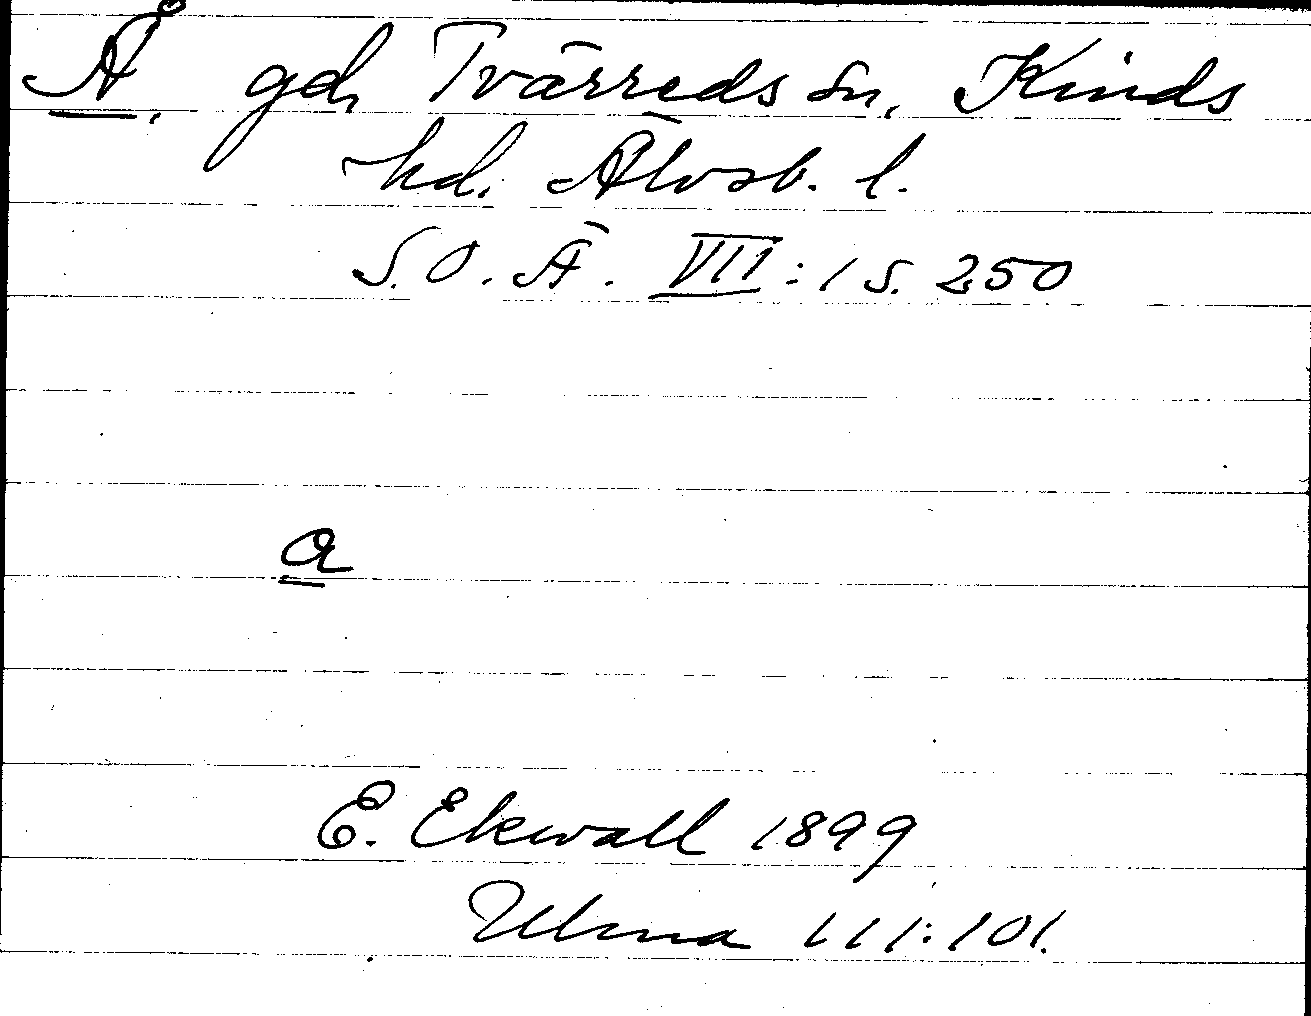 Å. gd, Tvärreds sn, Kinds
hd. Älvsb. l.
S.O.Ä. VII:1 s. 250
a
E. Ekwall 1899
Ulma 111:101.